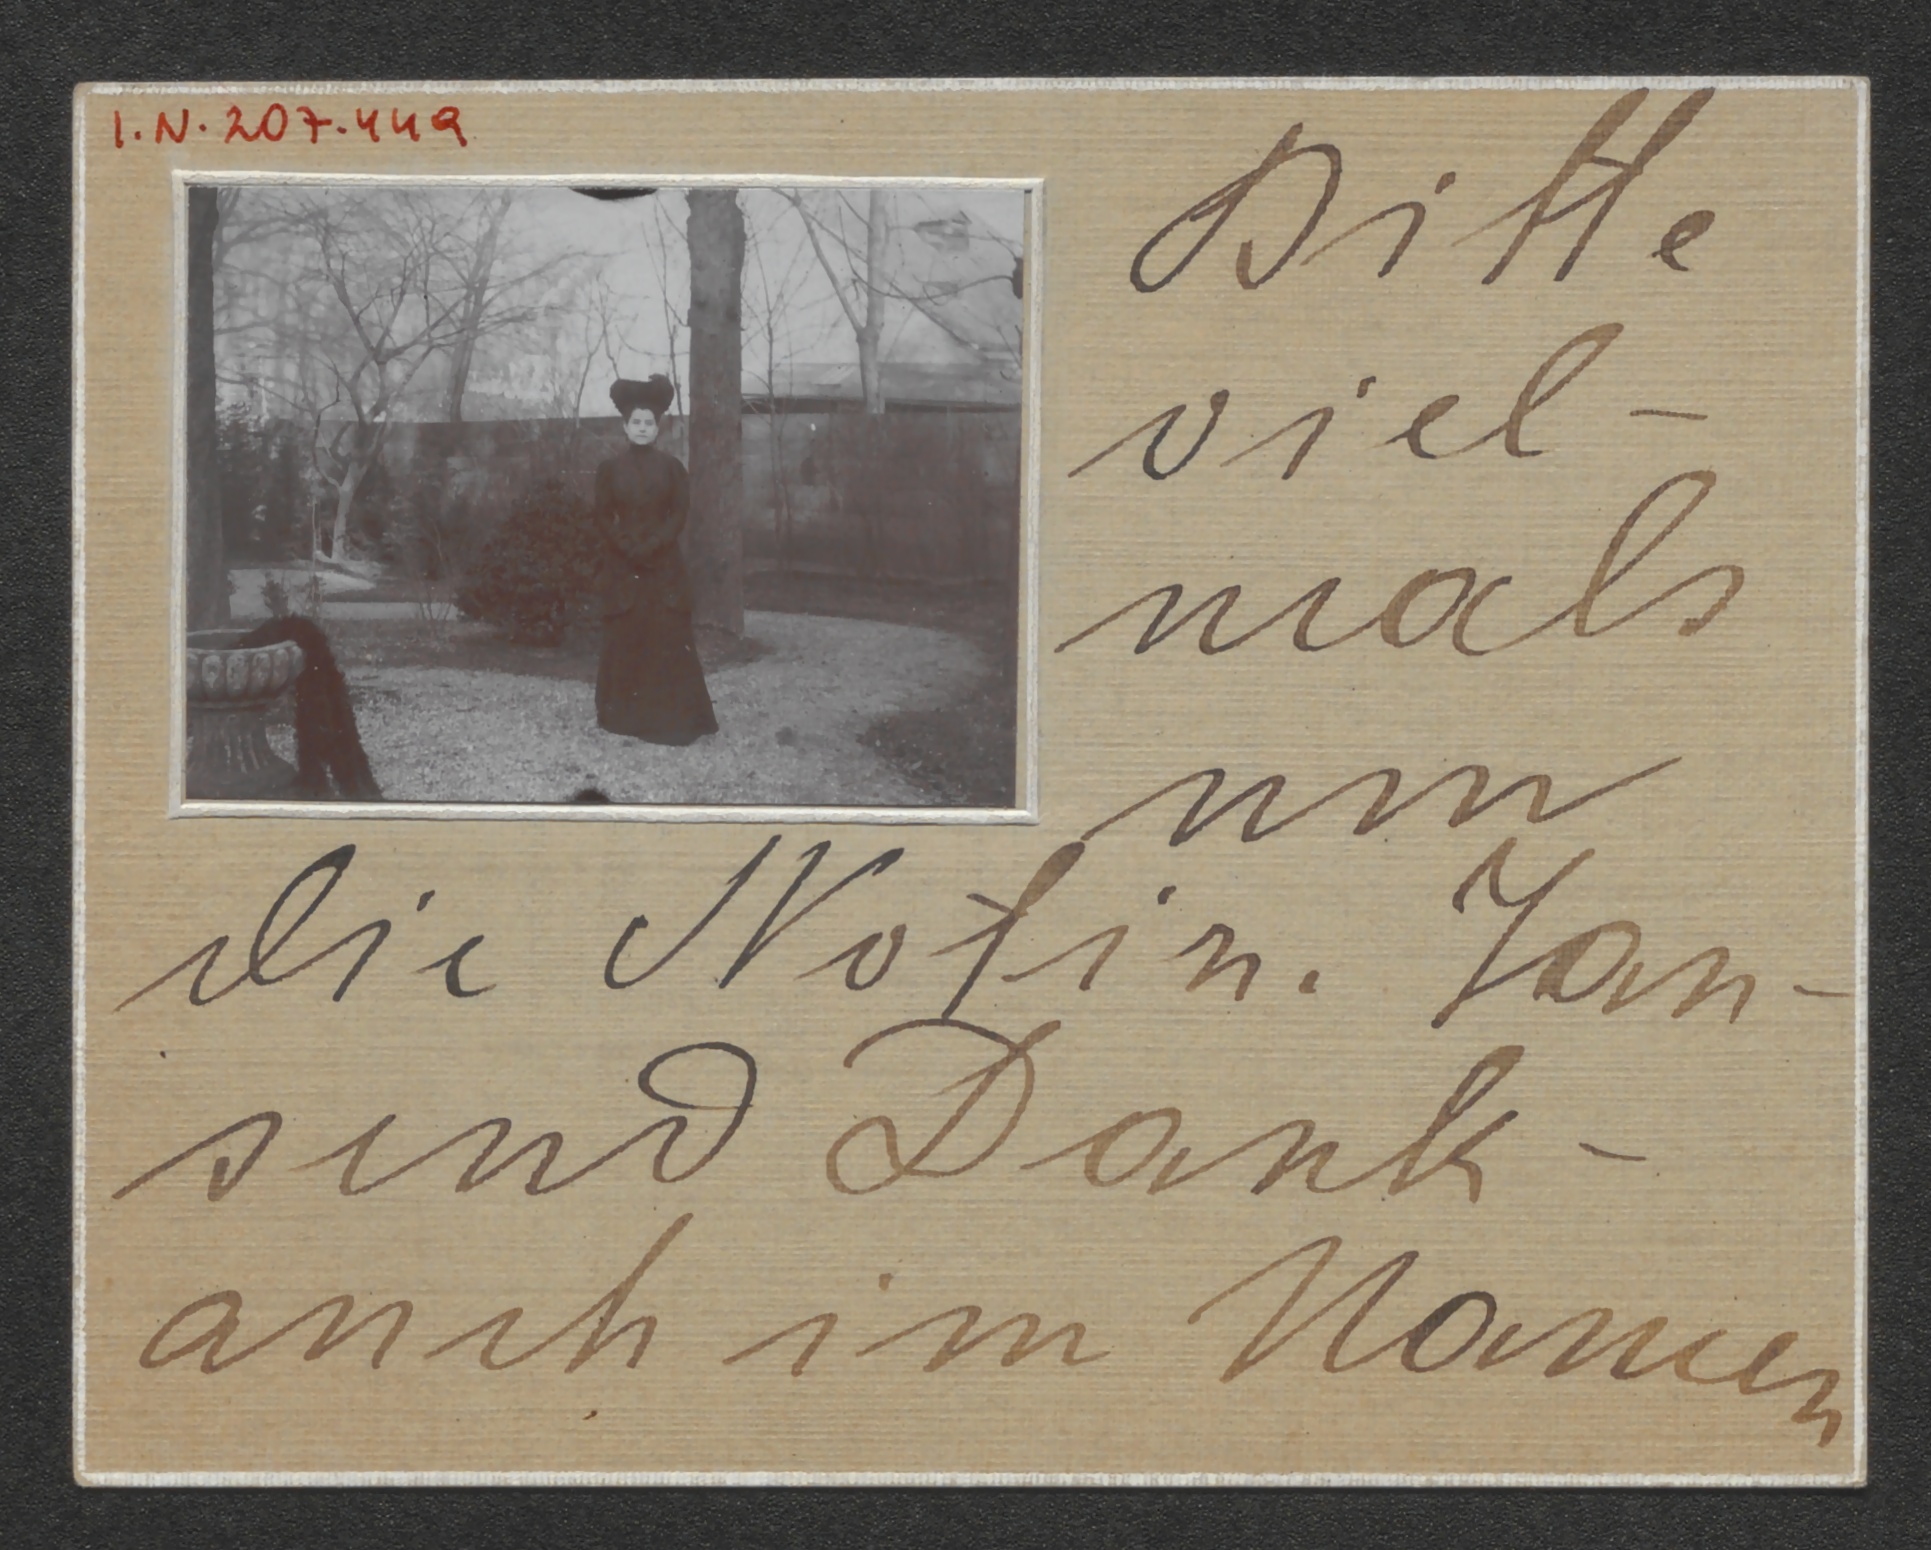 I.N. 207.449
Bitte
viel-
mals
um
die Notiz. Tau-
send Dank -
auch im Namen